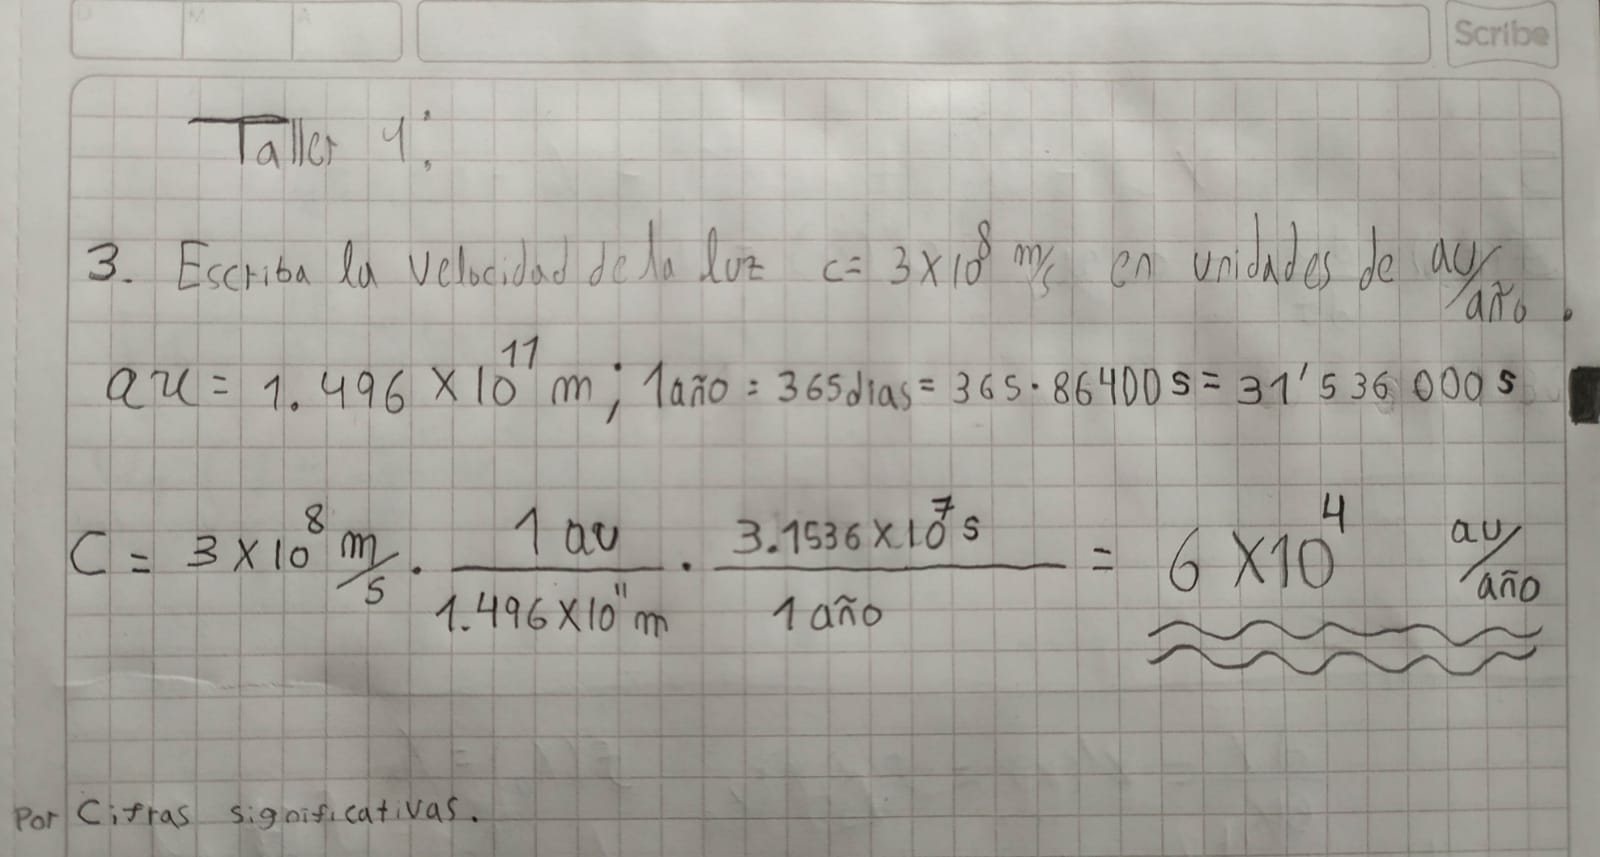 D M A
Scribe
Taller 1:
3. Escriba la velocidad de la luz c= 3×10⁸ m/s en unidades de au/año.
au = 1.496 ×10¹¹ m; 1año = 365dias = 365·86400s = 31'536 000s
C = 3×10⁸ m/s · 1 au / 1.496×10¹¹ m · 3.1536×10⁷ s / 1 año = 6 ×10⁴ au/año
Por Cifras significativas.